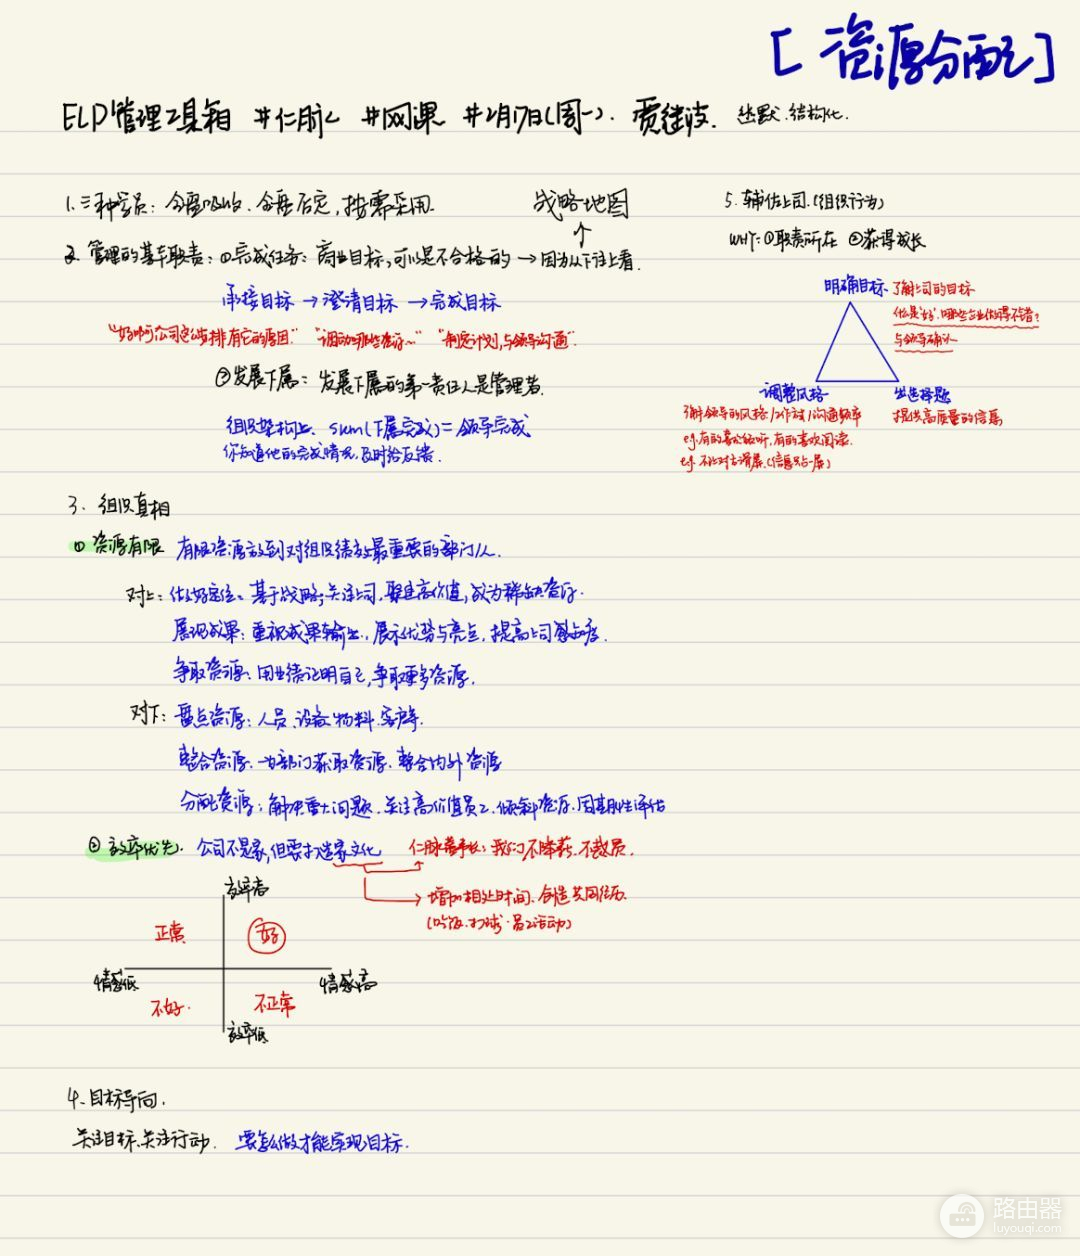 [资源分配]
ELP管理工具箱 #仁脉 #网课 #2月17日(周一). 贾继波. 幽默.结构化.
1.三种学员: 全盘吸收、全盘否定, 按需采用.
战略地图
2. 管理的基本职责: ①完成任务: 商业目标, 可以是不合格的 → 因为从下往上看.
承接目标 → 澄清目标 → 完成目标
“好啊公司这么安排有它的原因.” “调动哪些资源…” “制定计划, 与领导沟通”
②发展下属: 发展下属的第一责任人是管理者.
组织架构上. sum(下属完成)=领导完成
你知道他的完成情况, 及时给反馈.
3. 组织真相
① 资源有限 有限资源放到对组织绩效最重要的部门/人.
对上: 做好定位: 基于战略, 关注上司, 塑造高价值, 成为稀缺资源.
展现成果: 重视成果输出, 展示优势与亮点, 提高上司感知度.
争取资源: 用业绩证明自己, 争取更多资源.
对下: 盘点资源: 人员、设备、物料、客户等.
整合资源. 为部门获取资源. 整合内外资源
分配资源: 解决重大问题. 关注高价值员工. 倾斜资源. 周期性评估
② 效率优先. 公司不是家, 但要打造家文化 仁脉董事长: 我们不降薪. 不裁员.
增加相处时间、创造共同经历.
(吃饭.打球.员工活动)
效率高
正常 好
情感低 情感高
不好. 不正常
效率低
4. 目标导向.
关注目标.关注行动. 要怎么做才能实现目标.
5. 辅佐上司.(组织行为)
WHY: ①职责所在 ②获得成长
明确目标 了解上司的目标
什么是“好”, 哪些企业做得不错?
与领导确认
调整风格 出选择题
了解领导的风格/工作方式/沟通频率 提供高质量的信息
eg.有的喜欢倾听, 有的喜欢阅读.
eg. 不让对方滑屏.(信息只占一屏)
路由器
luyouqi.com